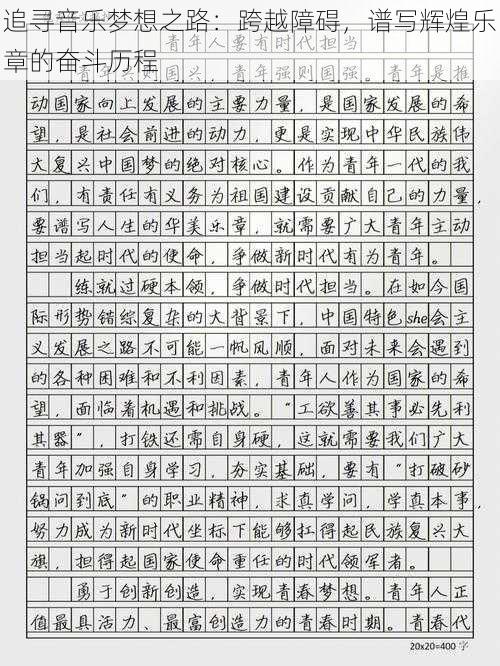 追寻音乐梦想之路：跨越障碍，谱写辉煌乐
章的奋斗历程
青年人要有时代担当
青年兴则国兴，青年强则国强。青年是推
动国家向上发展的主要力量，是国家发展的希
望，是社会前进的动力，更是实现中华民族伟
大复兴中国梦的绝对核心。作为青年一代的我
们，有责任有义务为祖国建设贡献自己的力量，
要谱写人生的华美乐章，就需要广大青年主动
担当起时代的使命，争做新时代有为青年。
练就过硬本领，争做时代担当。在如今国
际形势错综复杂的大背景下，中国特色she会主
义发展之路不可能一帆风顺，面对未来会遇到
的各种困难和不利因素，青年人作为国家的希
望，面临着机遇和挑战。“工欲善其事必先利
其器”，打铁还需自身硬，这就需要我们广大
青年加强自身学习，夯实基础，要有“打破砂
锅问到底”的职业精神，求真学问，学真本事，
努力成为新时代坐标下能够扛得起民族复兴大
旗，担得起国家使命重任的时代领军者。
勇于创新创造，实现青春梦想。青年人正
值最具活力、最富创造力的青春时期。青春代
20x20=400 字